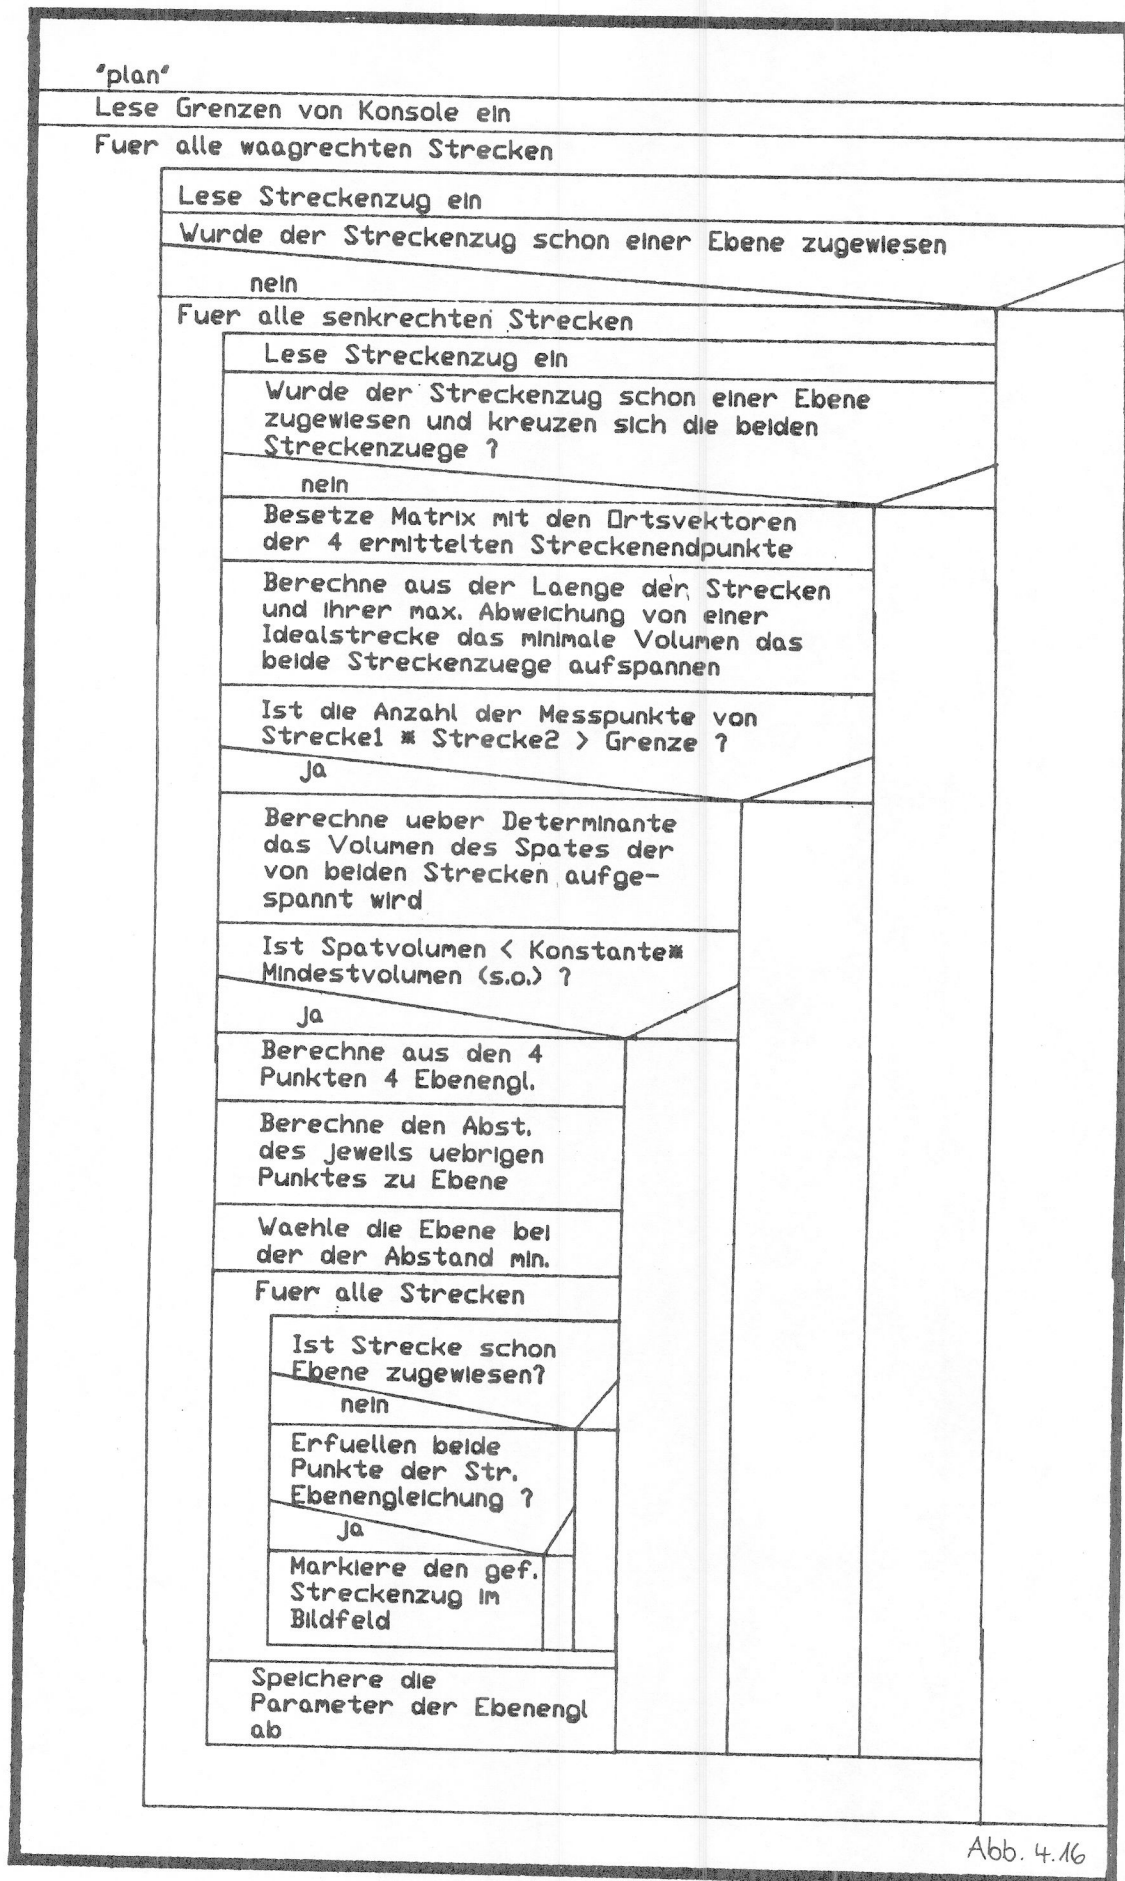 "plan"
Lese Grenzen von Konsole ein
Fuer alle waagrechten Strecken
Lese Streckenzug ein
Wurde der Streckenzug schon einer Ebene zugewiesen
nein
Fuer alle senkrechten Strecken
Lese Streckenzug ein
Wurde der Streckenzug schon einer Ebene
zugewiesen und kreuzen sich die beiden
Streckenzuege ?
nein
Besetze Matrix mit den Ortsvektoren
der 4 ermittelten Streckenendpunkte
Berechne aus der Laenge der Strecken
und ihrer max. Abweichung von einer
Idealstrecke das minimale Volumen das
beide Streckenzuege aufspannen
Ist die Anzahl der Messpunkte von
Strecke1 * Strecke2 > Grenze ?
ja
Berechne ueber Determinante
das Volumen des Spates der
von beiden Strecken aufge-
spannt wird
Ist Spatvolumen < Konstante*
Mindestvolumen (s.o.) ?
ja
Berechne aus den 4
Punkten 4 Ebenengl.
Berechne den Abst.
des jeweils uebrigen
Punktes zu Ebene
Waehle die Ebene bei
der der Abstand min.
Fuer alle Strecken
Ist Strecke schon
Ebene zugewiesen?
nein
Erfuellen beide
Punkte der Str.
Ebenengleichung ?
ja
Markiere den gef.
Streckenzug im
Bildfeld
Speichere die
Parameter der Ebenengl
ab
Abb. 4.16